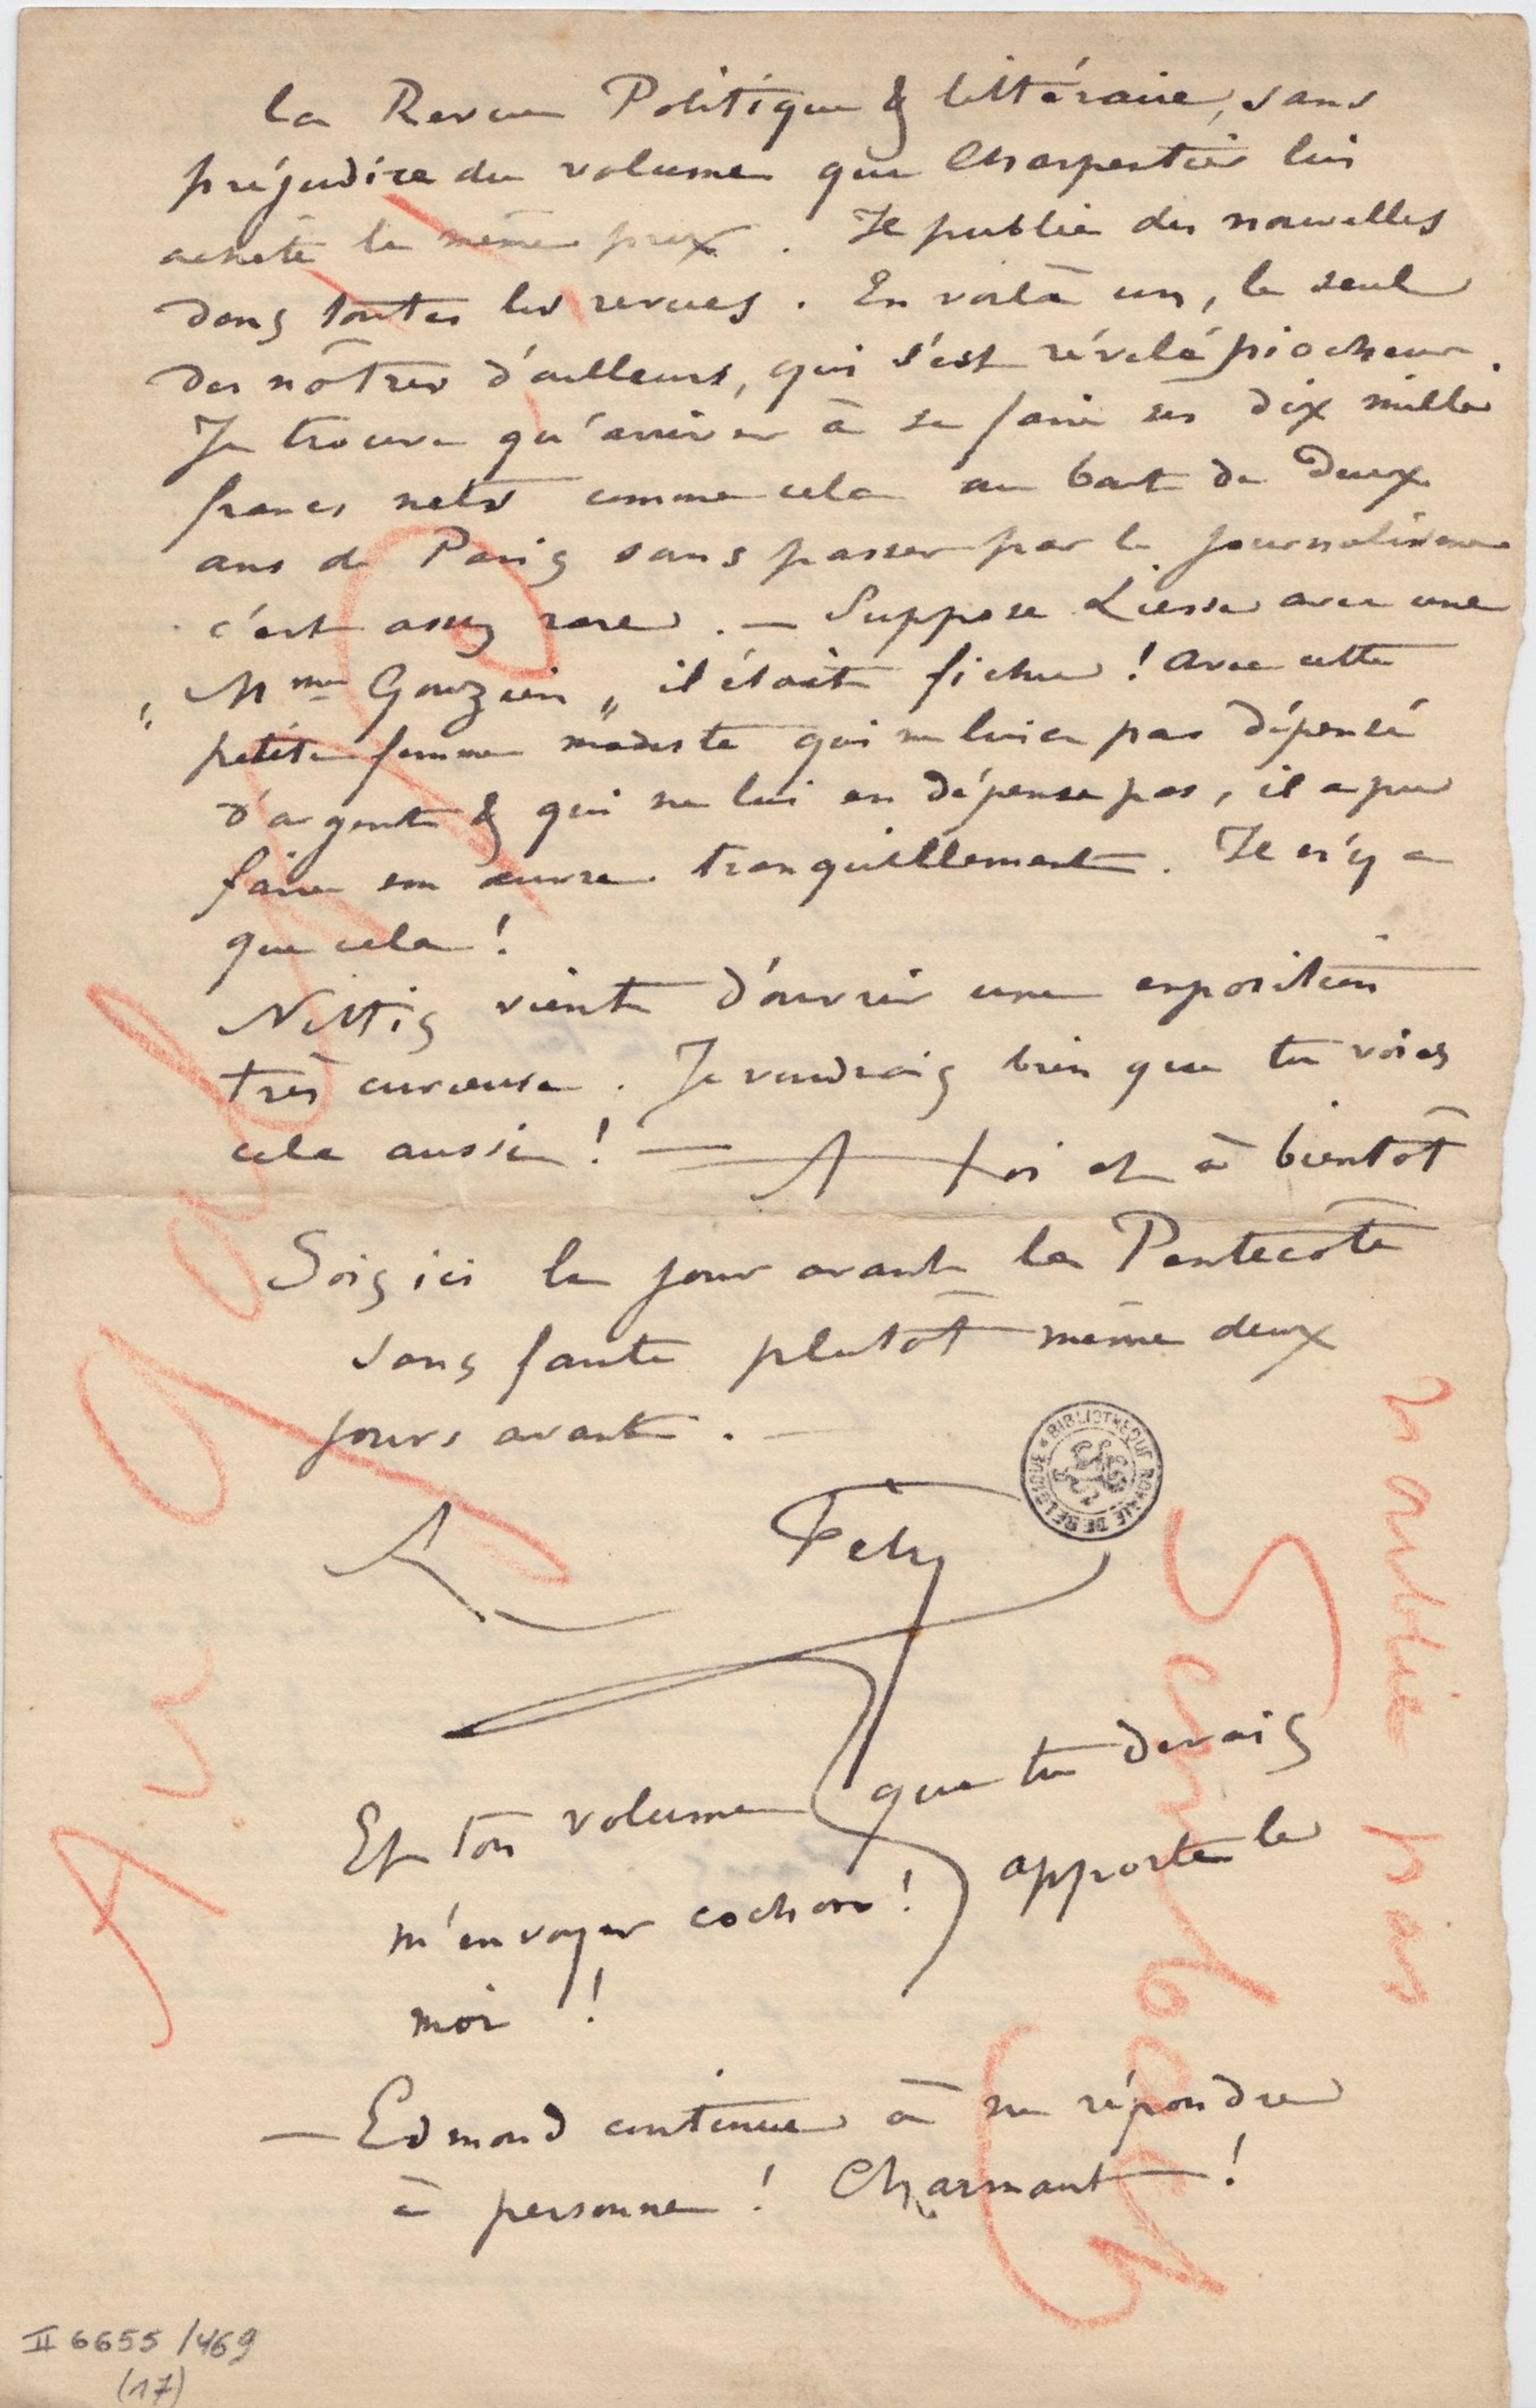 la Revue Politique & littéraire, sans
préjudice du volume que Charpentier lui
achète le même prix. Il publie des nouvelles
dans toutes les revues. En voilà un, le seul
des nôtres d'ailleurs, qui s'est révélé piocheur.
Je trouve qu'arriver à se faire ses dix mille
francs nets comme cela au bout de deux
ans de Paris sans passer par le journalisme
c'est assez rare. — Suppose Liesse avec une
"Mme Gouzien" il était fichu ! avec cette
petite femme modeste qui ne lui a pas dépensé
d'argent & qui ne lui en dépense pas, il a pu
faire son œuvre tranquillement. Il n'y a
que cela !
Nittis vient d'ouvrir une exposition
très curieuse. Je voudrais bien que tu voies
cela aussi ! — A toi et à bientôt
Sois ici le jour avant la Pentecôte
sans faute plutôt même deux
jours avant. —
Fély
Et ton volume que tu devais
m'envoyer cochon ! apporte le
moi !
— Edmond continue à ne répondre
à personne ! Charmant !
n'oublie pas
BIBLIOTHEQUE ROYALE DE BELGIQUE
II 6655/469
(17)